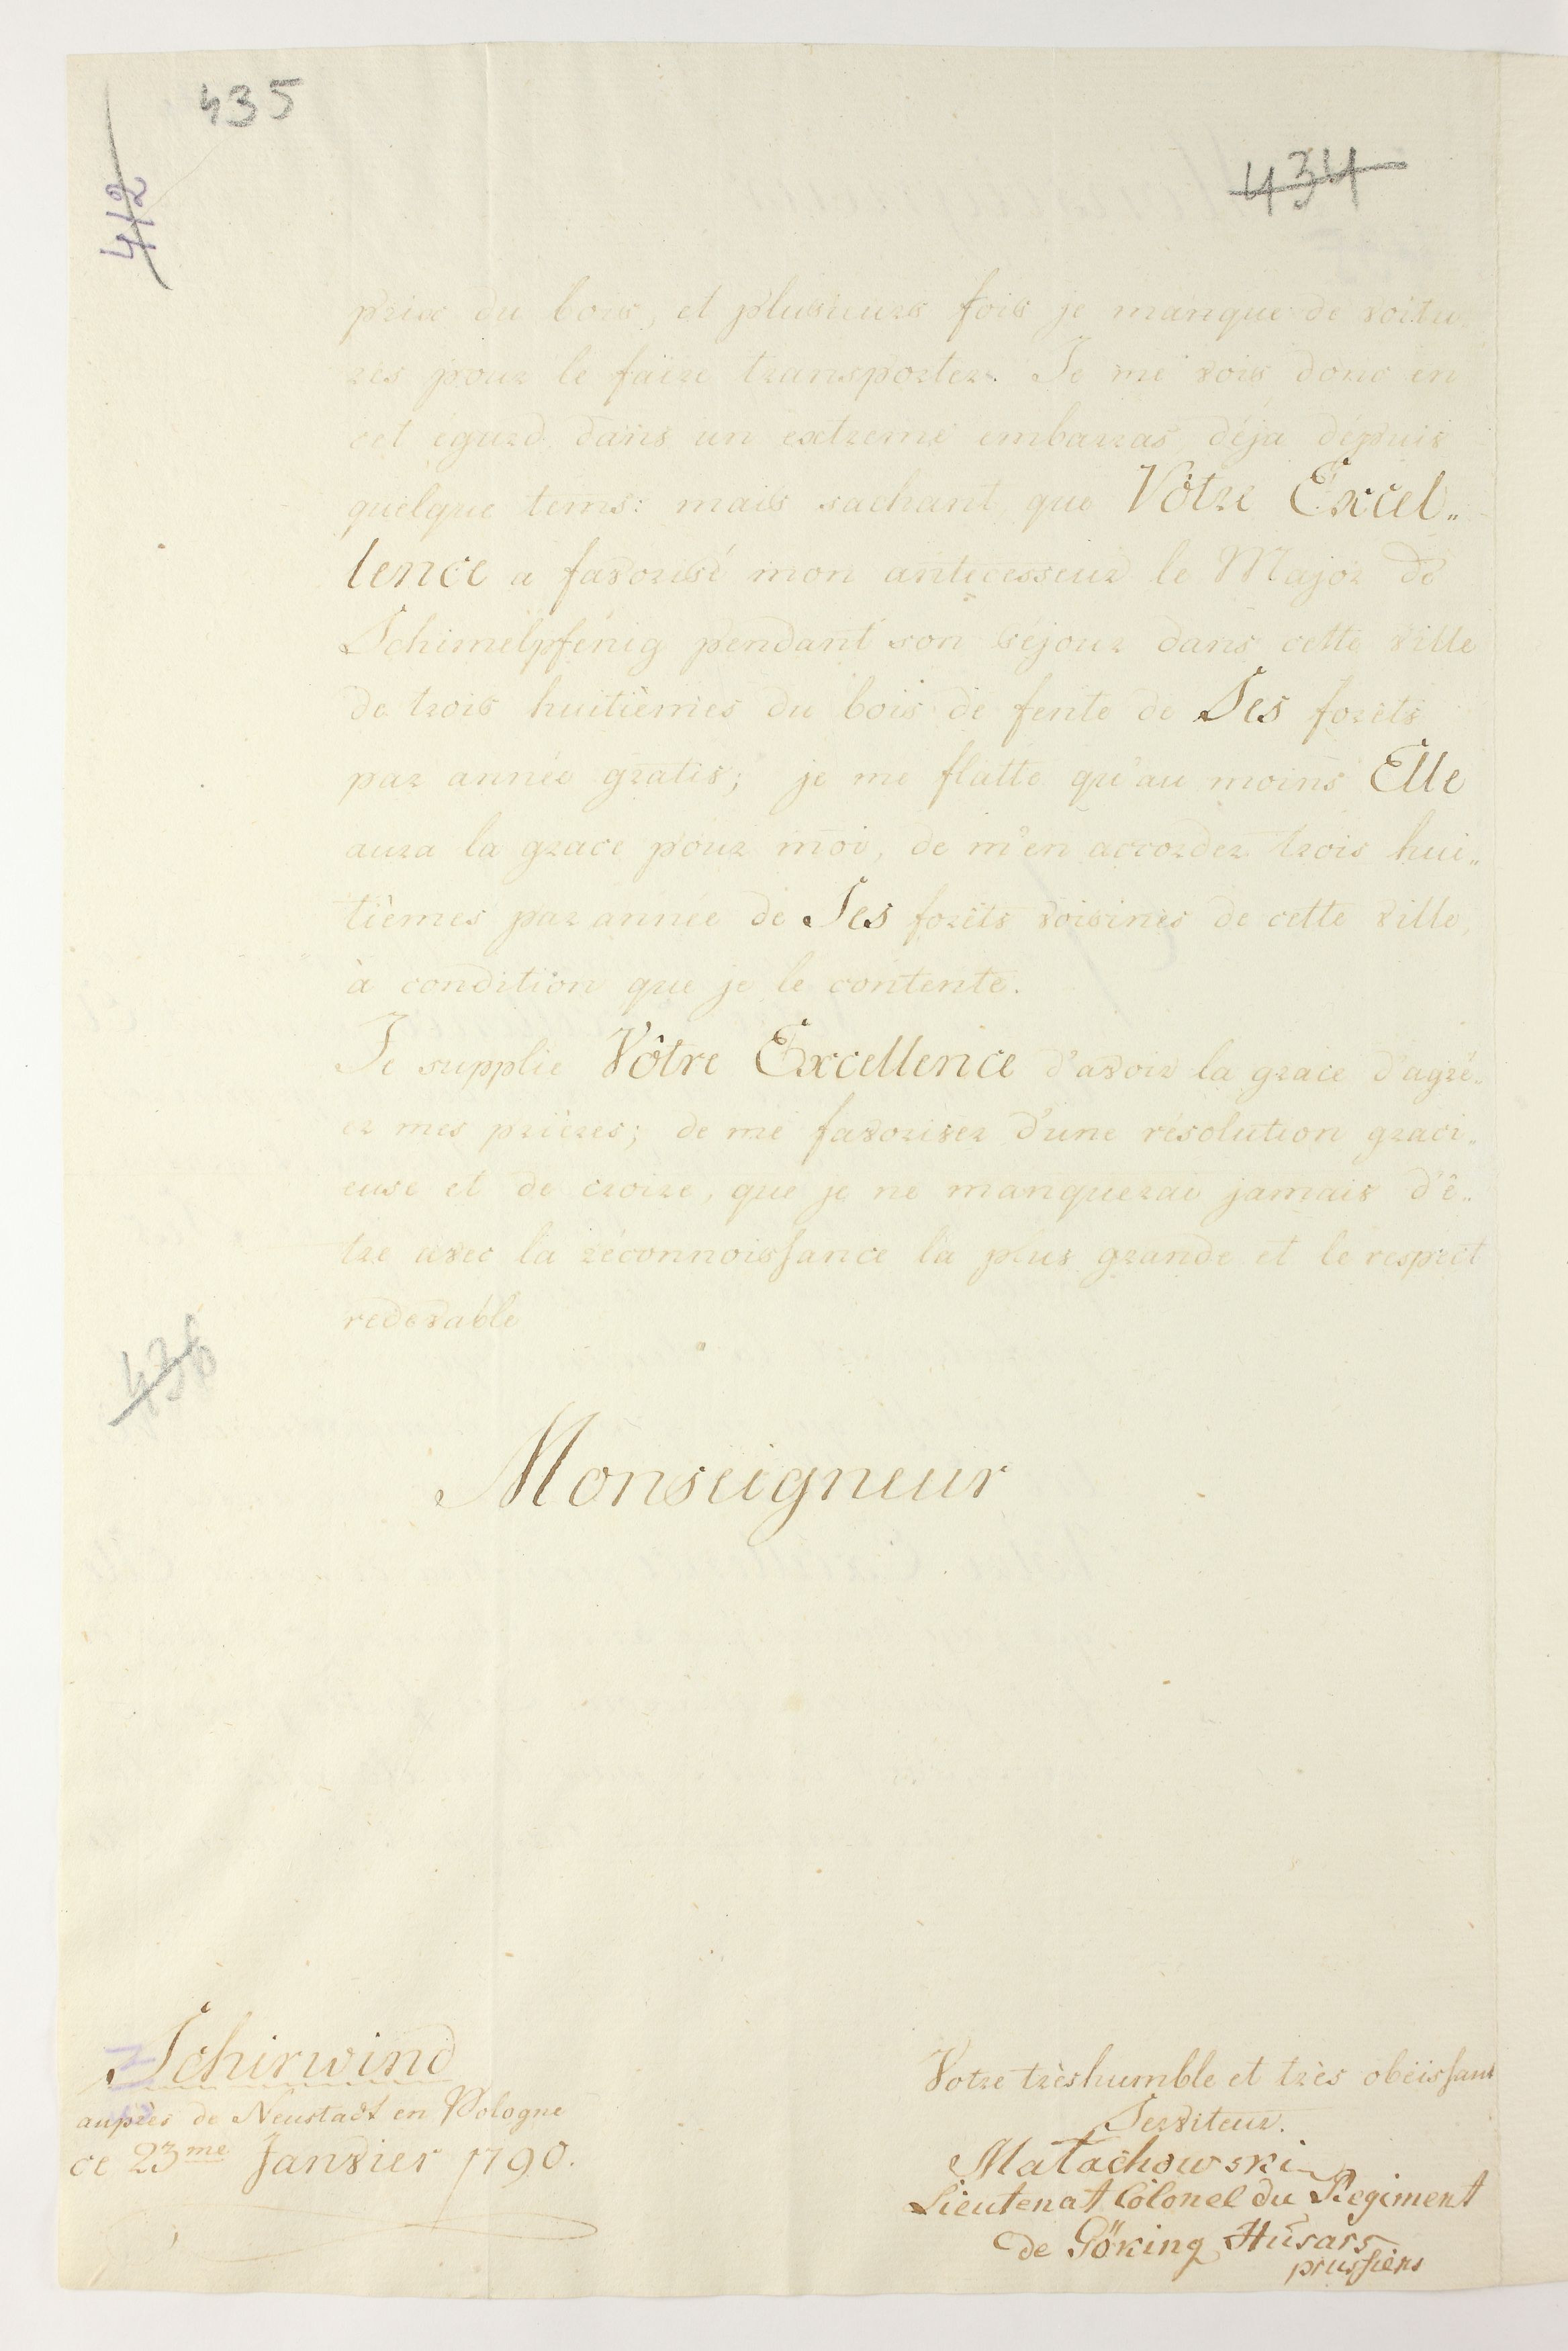 435
434
412
prix du bois, et plusieurs fois je manque de voitu-
res pour le faire transporter. Je me vois donc en
cet égard dans un extreme embarras déja dépuis
quelque tems: mais sachant que Vôtre Excel„
lence a favorisé mon antecesseur le Major de
Schimelpfenig pendant son séjour dans cette ville
de trois huitièmes du bois de fente de Ses forets
par année gratis; je me flatte qu'au moins Elle
aura la grace pour moi, de m'en accorder trois hui„
tièmes par année de Ses forêts voisines de cette ville,
à condition que je le contente.
Je supplie Vôtre Excellence d'avoir la grace d'agré-
er mes prières; de me favoriser d'une résolution graci„
euse et de croire, que je ne manquerai jamais d'ê„
tre avec la réconnoissance la plus grande et le respect
redevable
436
Monseigneur
Schirwind
auprès de Neustadt en Pologne
ce 23me Janvier 1790.
Votre trèshumble et très obéissant
Serviteur.
Małachowski
Lieutenat Colonel du Regiment
de Göking Husars
prussiens